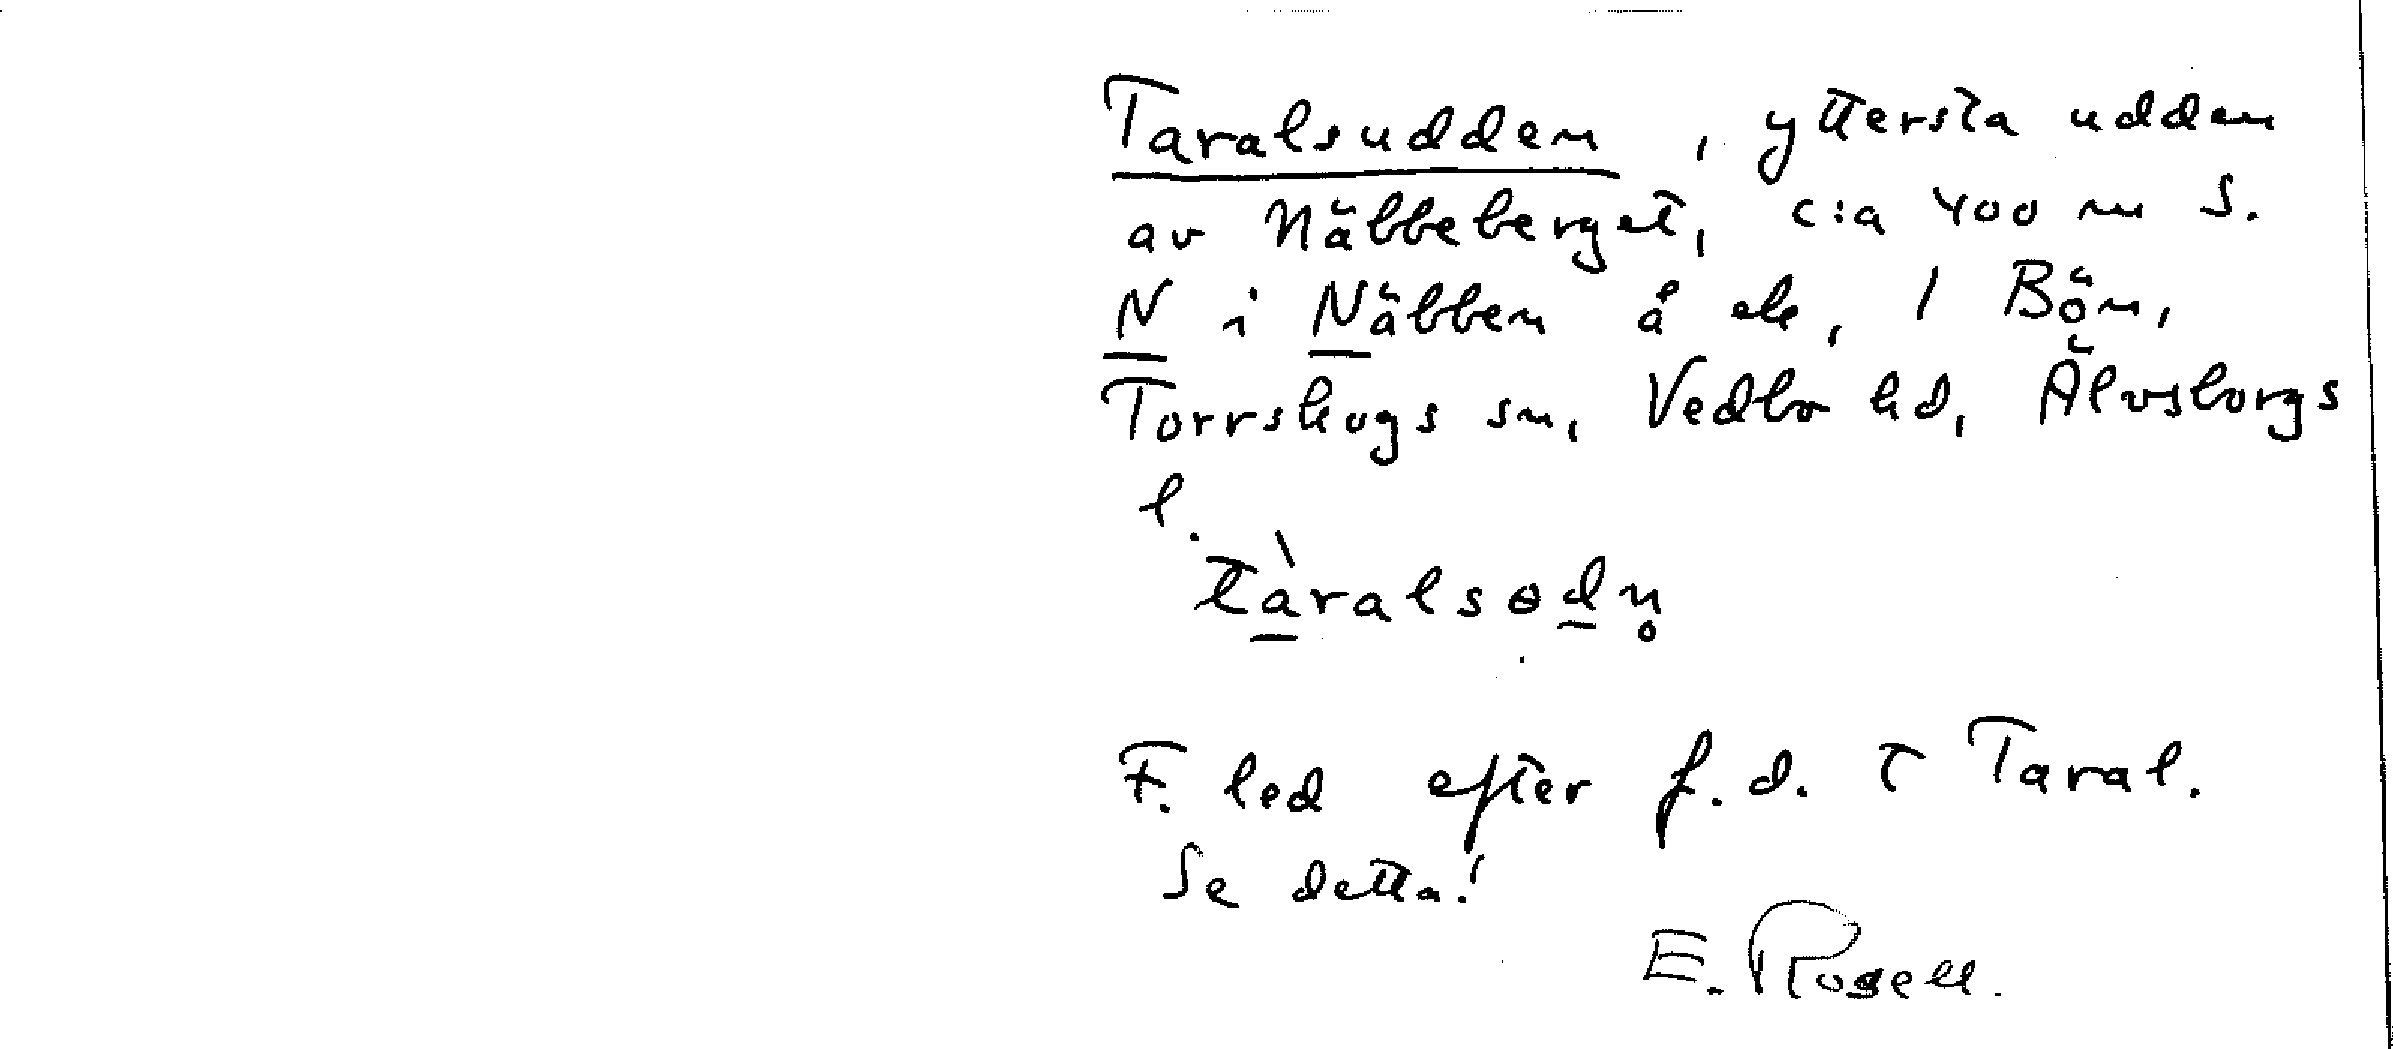 Taralsudden, yttersta udden
av Näbbeberget, c:a 400 m S.
N i Näbben å ek, 1 Bön,
Torrskogs sn, Vedbo hd, Älvsborgs
l.
tàralsɵdn̥
F. led efter f.d. T Taral.
Se detta!
E. Rosell.